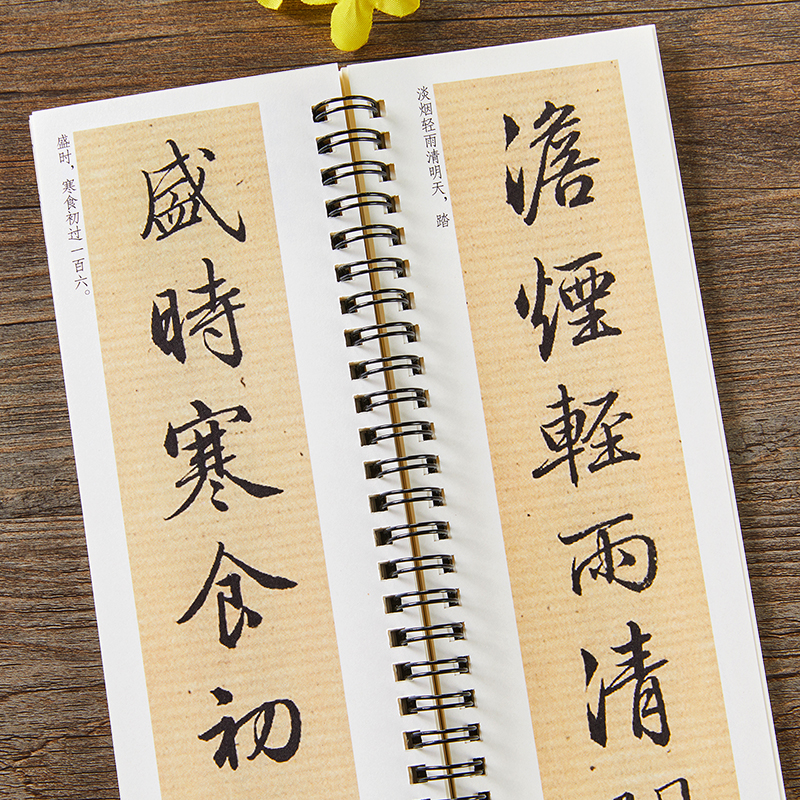 盛时，寒食初过一百六。
盛時寒食初
淡烟轻雨清明天，踏
澹煙輕雨清